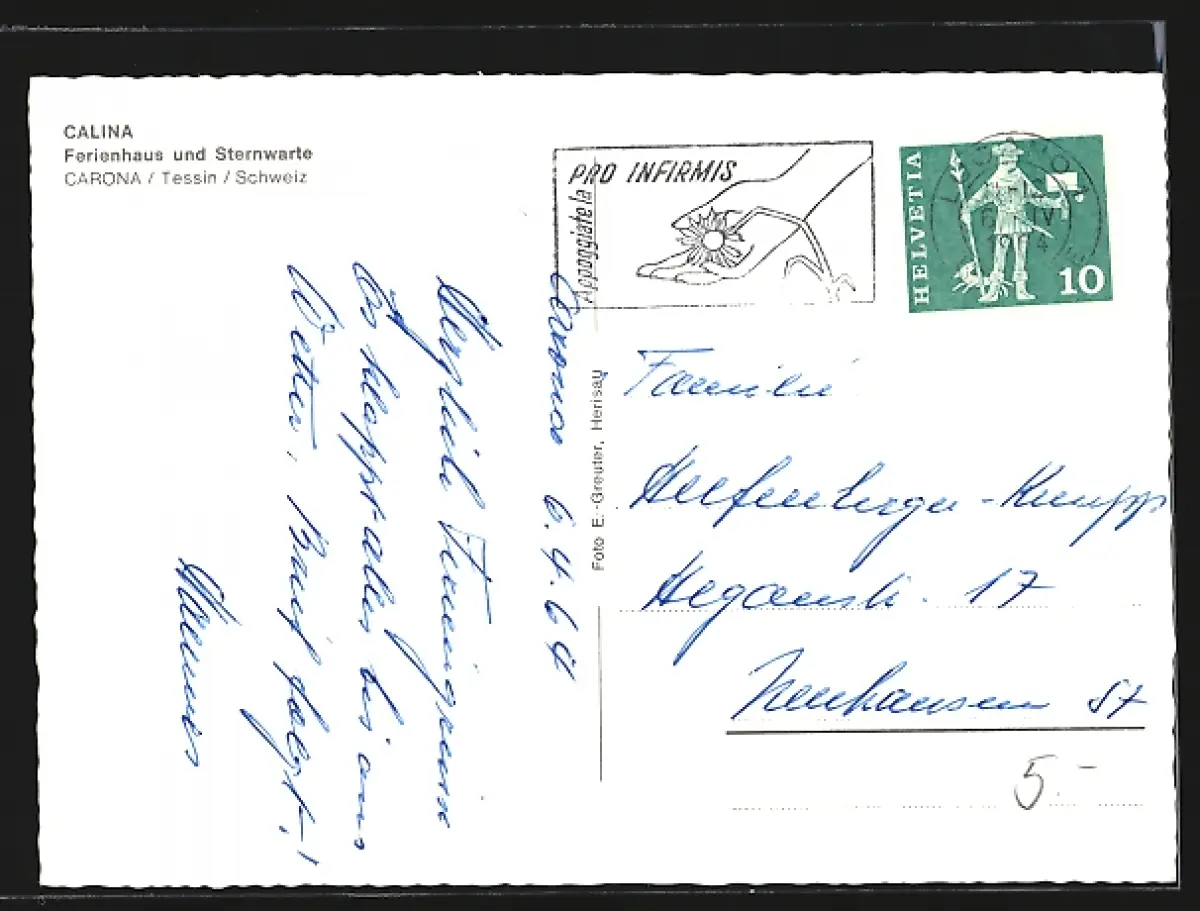 CALINA
Ferienhaus und Sternwarte
CARONA / Tessin / Schweiz
PRO INFIRMIS
Appoggiatela
HELVETIA
10
Carona 6.4.64
Herzliche Feriengrüsse
Es klappt alles bis aufs
Wetter, Brief folgt!
Hannes
Foto E. Greuter, Herisau
Familie
17
Neuhausen
5.-